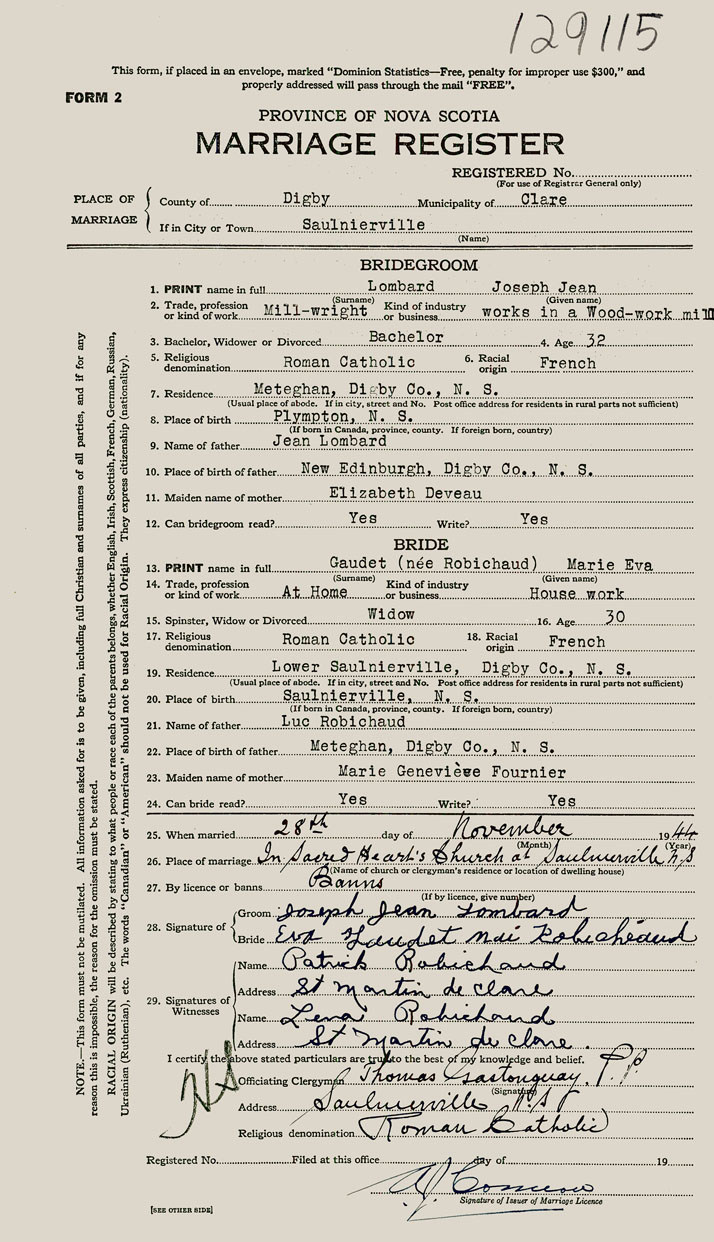 129115
This form, if placed in an envelope, marked "Dominion Statistics—Free, penalty for improper use $300," and
properly addressed will pass through the mail "FREE".
FORM 2
PROVINCE OF NOVA SCOTIA
MARRIAGE REGISTER
REGISTERED No.
(For use of Registrar General only)
PLACE OF MARRIAGE
County of Digby Municipality of Clare
If in City or Town Saulnierville
(Name)
BRIDEGROOM
1. PRINT name in full Lombard Joseph Jean
(Surname) (Given name)
2. Trade, profession or kind of work Mill-wright Kind of industry or business works in a Wood-work mill
3. Bachelor, Widower or Divorced Bachelor 4. Age 32
5. Religious denomination Roman Catholic 6. Racial origin French
7. Residence Meteghan, Digby Co., N. S.
(Usual place of abode. If in city, street and No. Post office address for residents in rural parts not sufficient)
8. Place of birth Plympton, N. S.
(If born in Canada, province, county. If foreign born, country)
9. Name of father Jean Lombard
10. Place of birth of father New Edinburgh, Digby Co., N. S.
11. Maiden name of mother Elizabeth Deveau
12. Can bridegroom read? Yes Write? Yes
BRIDE
13. PRINT name in full Gaudet (née Robichaud) Marie Eva
(Surname) (Given name)
14. Trade, profession or kind of work At Home Kind of industry or business House work
15. Spinster, Widow or Divorced Widow 16. Age 30
17. Religious denomination Roman Catholic 18. Racial origin French
19. Residence Lower Saulnierville, Digby Co., N. S.
(Usual place of abode. If in city, street and No. Post office address for residents in rural parts not sufficient)
20. Place of birth Saulnierville, N. S.
(If born in Canada, province, county. If foreign born, country)
21. Name of father Luc Robichaud
22. Place of birth of father Meteghan, Digby Co., N. S.
23. Maiden name of mother Marie Geneviève Fournier
24. Can bride read? Yes Write? Yes
25. When married 28th day of November 1944
(Month) (Year)
26. Place of marriage In Sacred Heart's Church at Saulnierville N S
(Name of church or clergyman's residence or location of dwelling house)
27. By licence or banns Banns
(If by licence, give number)
28. Signature of
Groom Joseph Jean Lombard
Bride Eva Gaudet née Robicheaud
29. Signatures of Witnesses
Name Patrick Robichaud
Address St Martin de Clare
Name Lena Robichaud
Address St Martin de Clare.
I certify the above stated particulars are true to the best of my knowledge and belief.
NS
Officiating Clergyman Thomas Gastonguay, P.P.
(Signature)
Address Saulnierville N S
Religious denomination Roman Catholic
Registered No. Filed at this office day of 19
A.J. Comeau
Signature of Issuer of Marriage Licence
[SEE OTHER SIDE]
NOTE.—This form must not be mutilated. All information asked for is to be given, including full Christian and surnames of all parties, and if for any
reason this is impossible, the reason for the omission must be stated.
RACIAL ORIGIN will be described by stating to what people or race each of the parents belongs, whether English, Irish, Scottish, French, German, Russian,
Ukrainian (Ruthenian), etc. The words "Canadian" or "American" should not be used for Racial Origin. They express citizenship (nationality).